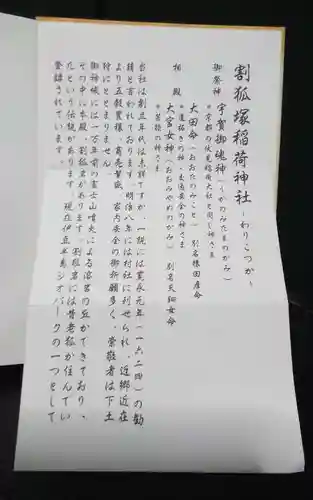 割狐塚稲荷神社 ~わりこづか~
御祭神 宇賀御魂神(うかのみたまのかみ)
*京都の伏見稲荷大社と同じ神さま
大田命(おおたのみこと) 別名猿田彦命
*道拓きの神・交通安全の神さま
相殿 大宮女神(おおみやめのかみ) 別名天鈿女命
*芸能の神さま
当社は創立年代は未詳ですが、一説には寛永元年(一六二四)の勧
請と言われております。明治八年には村社に列せられ、近郷近在
より五穀豊穣、商売繁盛、家内安全の御祈願多く、崇敬者は下土
狩にとどまりません。
御神域には一万年前の富士山噴火による溶岩の丘ができており、
その中に本殿、割狐岩があります。割狐岩には昔老狐が住んでい
たという伝説があります。現在伊豆半島ジオパークの一つとして
登録されています。